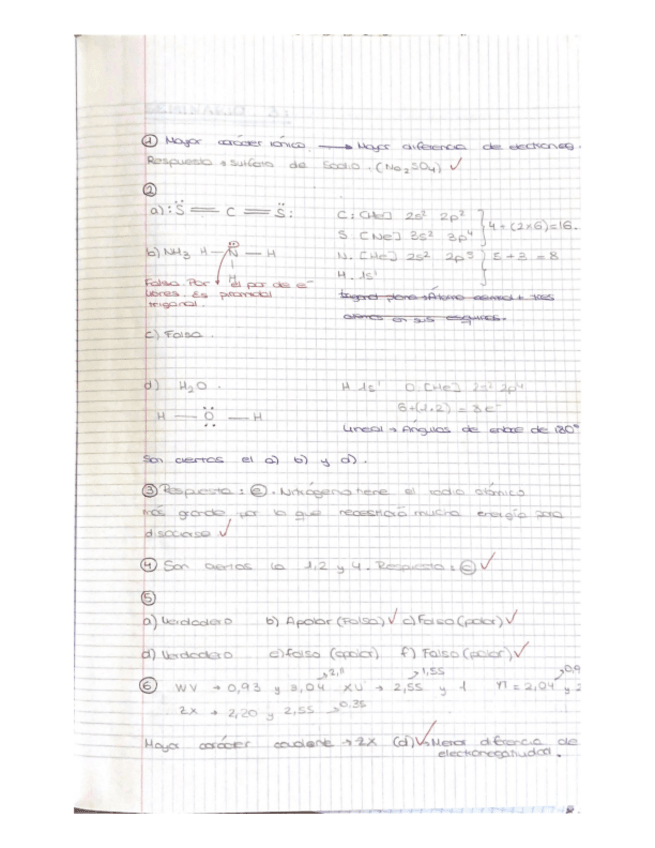 SEMINARIO 3:
① Mayor carácter iónico. → Mayor diferencia de electroneg.
Respuesta → Sulfato de Sodio. (Na₂SO₄) ✓
②
a) :S̈ = C = S̈: C: [He] 2s² 2p²
S [Ne] 3s² 3p⁴ } 4 + (2x6) = 16.
b) NH₃ H — N — H N. [He] 2s² 2p³ } 5 + 3 = 8
H H. 1s¹
Falso. Por el par de e⁻
libres. Es piramidal
trigonal.
trigonal plana → Átomo central + tres
átomos en sus esquinas.
c) Falso.
d) H₂O. H 1s¹ O. [He] 2s² 2p⁴
6+(1.2) = 8e⁻
H — Ö — H
Lineal → Ángulos de enlace de 180°
Son ciertos el a) b) y d).
③ Respuesta: ⓔ. Nitrógeno tiene el radio atómico
más grande por lo que necesitará mucha energía para
disociarse ✓
④ Son ciertas la 1,2 y 4. Respuesta: ✓
⑤
a) Verdadero b) Apolar (Falso) ✓ c) Falso (polar) ✓
d) Verdadero e) falso (apolar) f) Falso (polar) ✓
⑥ WV → 0,93 y 3,04 → 2,11 XU → 2,55 y 1 → 1,55 YT = 2,04 y
ZX → 2,20 y 2,55 → 0,35
Mayor carácter covalente → ZX (d) ✓ → Menor diferencia de
electronegatividad.